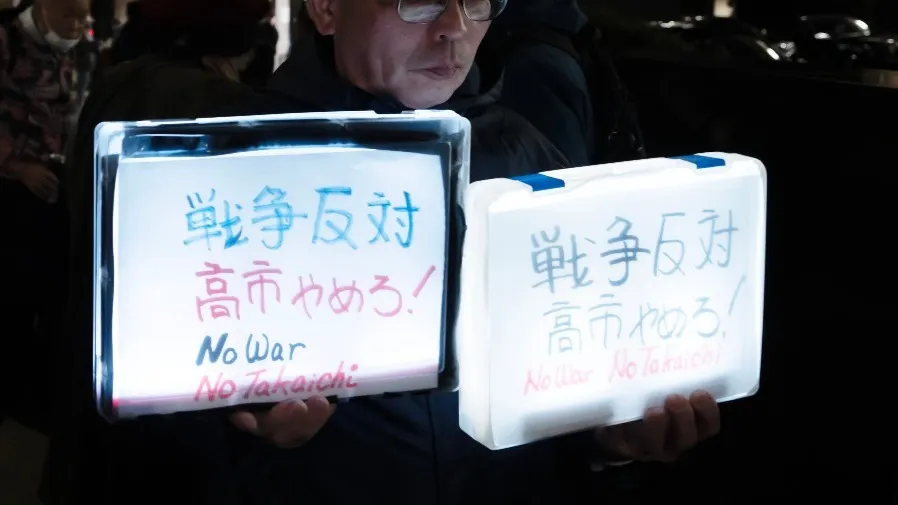 戦争反対
高市やめろ!
No War
No Takaichi
戦争反対
高市やめろ!
No War No Takaichi